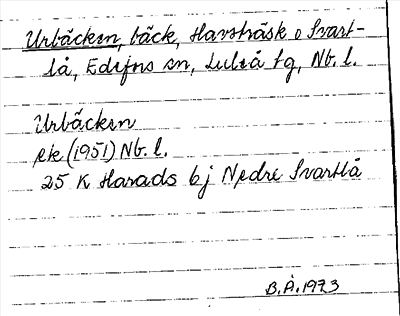 Urbäcken, bäck, Havsträsk o Svart-
lå, Edefors sn, Luleå tg, Nb. l.
Urbäcken
ek (1951) Nb. l.
25 K Harads bj Nedre Svartlå
B.Å. 1973